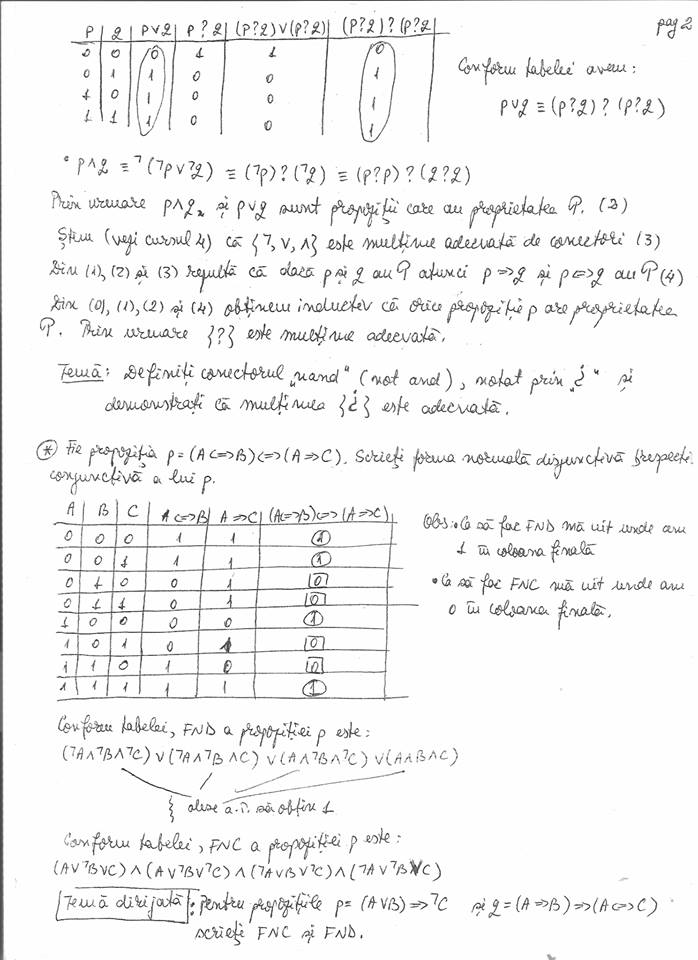 pag 2
p | q | p∨q | p ? q | (p?q)∨(p?q) | (p?q)?(p?q)
0 0 0 1 1 0
0 1 1 0 0 1
1 0 1 0 0 1
1 1 1 0 0 1
Conform tabelei avem:
p∨q ≡ (p?q) ? (p?q)
• p∧q ≡ ⌝(⌝p∨⌝q) ≡ (⌝p)?(⌝q) ≡ (p?p)?(q?q)
Prin urmare p∧q, și p∨q sunt propoziții care au proprietatea P. (2)
Știm (vezi cursul 4) că {⌝, ∨, ∧} este mulțime adecvată de conectori (3)
Din (1), (2) și (3) rezultă că dacă p și q au P atunci p ⇒ q și p ⇔ q au P (4)
Din (0), (1), (2) și (4) obținem inductiv că orice propoziție p are proprietatea
P. Prin urmare {?} este mulțime adecvată.
Temă: Definiți conectorul „nand" (not and), notat prin „¿" și
demonstrați că mulțimea {¿} este adecvată.
* Fie propoziția p = (A⇔B)⇔(A⇒C). Scrieți forma normală disjunctivă și respectiv
conjunctivă a lui p.
A | B | C | A⇔B | A⇒C | (A⇔B)⇔(A⇒C)
0 0 0 1 1 1
0 0 1 1 1 1
0 1 0 0 1 0
0 1 1 0 1 0
1 0 0 0 0 1
1 0 1 0 1 0
1 1 0 1 0 0
1 1 1 1 1 1
Obs: • Ca să fac FND mă uit unde am
1 în coloana finală
• Ca să fac FNC mă uit unde am
0 în coloana finală.
Conform tabelei, FND a propoziției p este:
(⌝A∧⌝B∧⌝C) ∨ (⌝A∧⌝B∧C) ∨ (A∧⌝B∧⌝C) ∨ (A∧B∧C)
alese a.î. să obțin 1
Conform tabelei, FNC a propoziției p este:
(A∨⌝B∨C) ∧ (A∨⌝B∨⌝C) ∧ (⌝A∨B∨⌝C) ∧ (⌝A∨⌝B∨C)
Temă dirijată: Pentru propozițiile p = (A∨B) ⇒ ⌝C și q = (A⇒B) ⇒ (A⇔C)
scrieți FNC și FND.